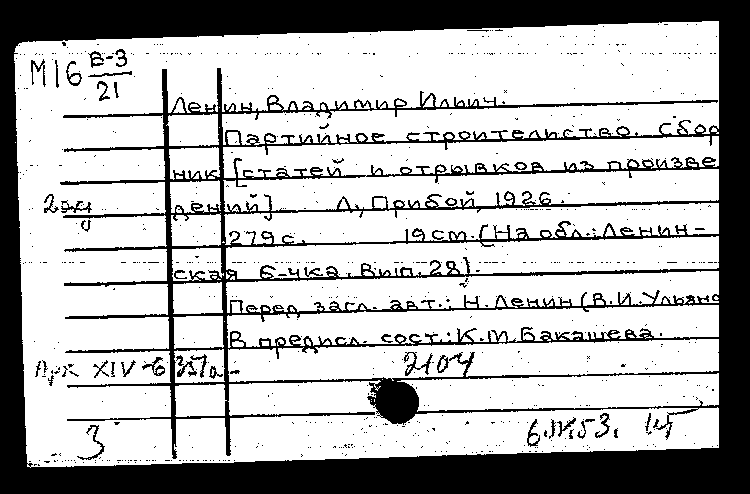 М16 В-3/21
Ленин, Владимир Ильич.
Партийное строительство. Сбор
ник [статей и отрывков из произве
2экз дений] Л., Прибой, 1926.
279с. 19см. (На обл.: Ленин-
ская б-чка. Вып. 28).
Перед загл. авт.: Н. Ленин (В.И. Ульяно
В предисл. сост.: К.М. Бакашева.
Арк XIV-6 357а- 2104
3